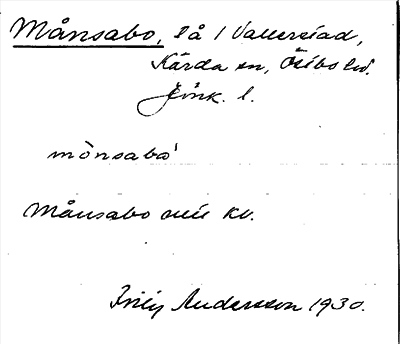 Månsabo, på 1 Vallerstad,
Kärda sn, Östbo hd.
Jönk. l.
mònsabo'
Månsabo kv.
Andersson 1930.